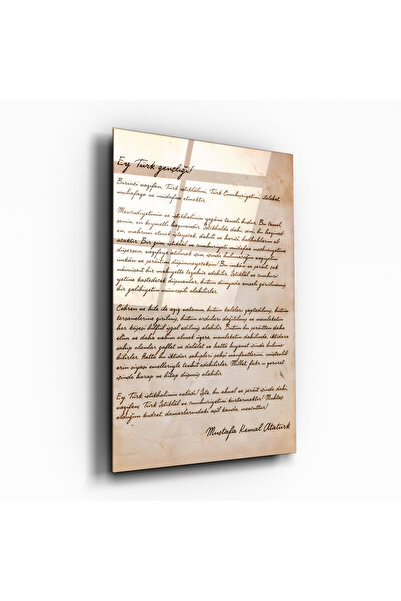 Ey Türk gençliği!
Birinci vazifen, Türk istiklâlini, Türk Cumhuriyetini, ilelebet
muhafaza ve müdafaa etmektir.
Mevcudiyetinin ve istikbalinin yegâne temeli budur. Bu temel
senin en kıymetli hazinendir. İstikbalde dahi, seni bu hazined-
en mahrum etmek isteyecek dahilî ve haricî bedhahların ol-
acaktır. Bir gün, istiklâl ve cumhuriyeti müdafaa mecburiyetine
düşersen, vazifeye atılmak için, içinde bulunacağın vaziyetin
imkân ve şeraitini düşünmeyeceksin! Bu imkân ve şerait, çok
nâmüsait bir mahiyette tezahür edebilir. İstiklâl ve cumhuri-
yetine kastedecek düşmanlar, bütün dünyada emsali görülmemiş
bir galibiyetin mümessili olabilirler.
Cebren ve hile ile aziz vatanın, bütün kaleleri zaptedilmiş, bütün
tersanelerine girilmiş, bütün orduları dağıtılmış ve memleketin
her köşesi bilfiil işgal edilmiş olabilir. Bütün bu şeraitten daha
elim ve daha vahim olmak üzere, memleketin dahilinde, iktidara
sahip olanlar gaflet ve dalalet ve hatta hıyanet içinde buluna-
bilirler. Hatta bu iktidar sahipleri şahsi menfaatlerini, müstevlil-
erin siyasi emelleriyle tevhit edebilirler. Millet, fakr u zaruret
içinde harap ve bitap düşmüş olabilir.
Ey Türk istikbalinin evladı! İşte, bu ahval ve şerait içinde dahi,
vazifen, Türk İstiklal ve cumhuriyetini kurtarmaktır! Muhtaç
olduğun kudret, damarlarındaki asil kanda, mevcuttur!
Mustafa Kemal Atatürk